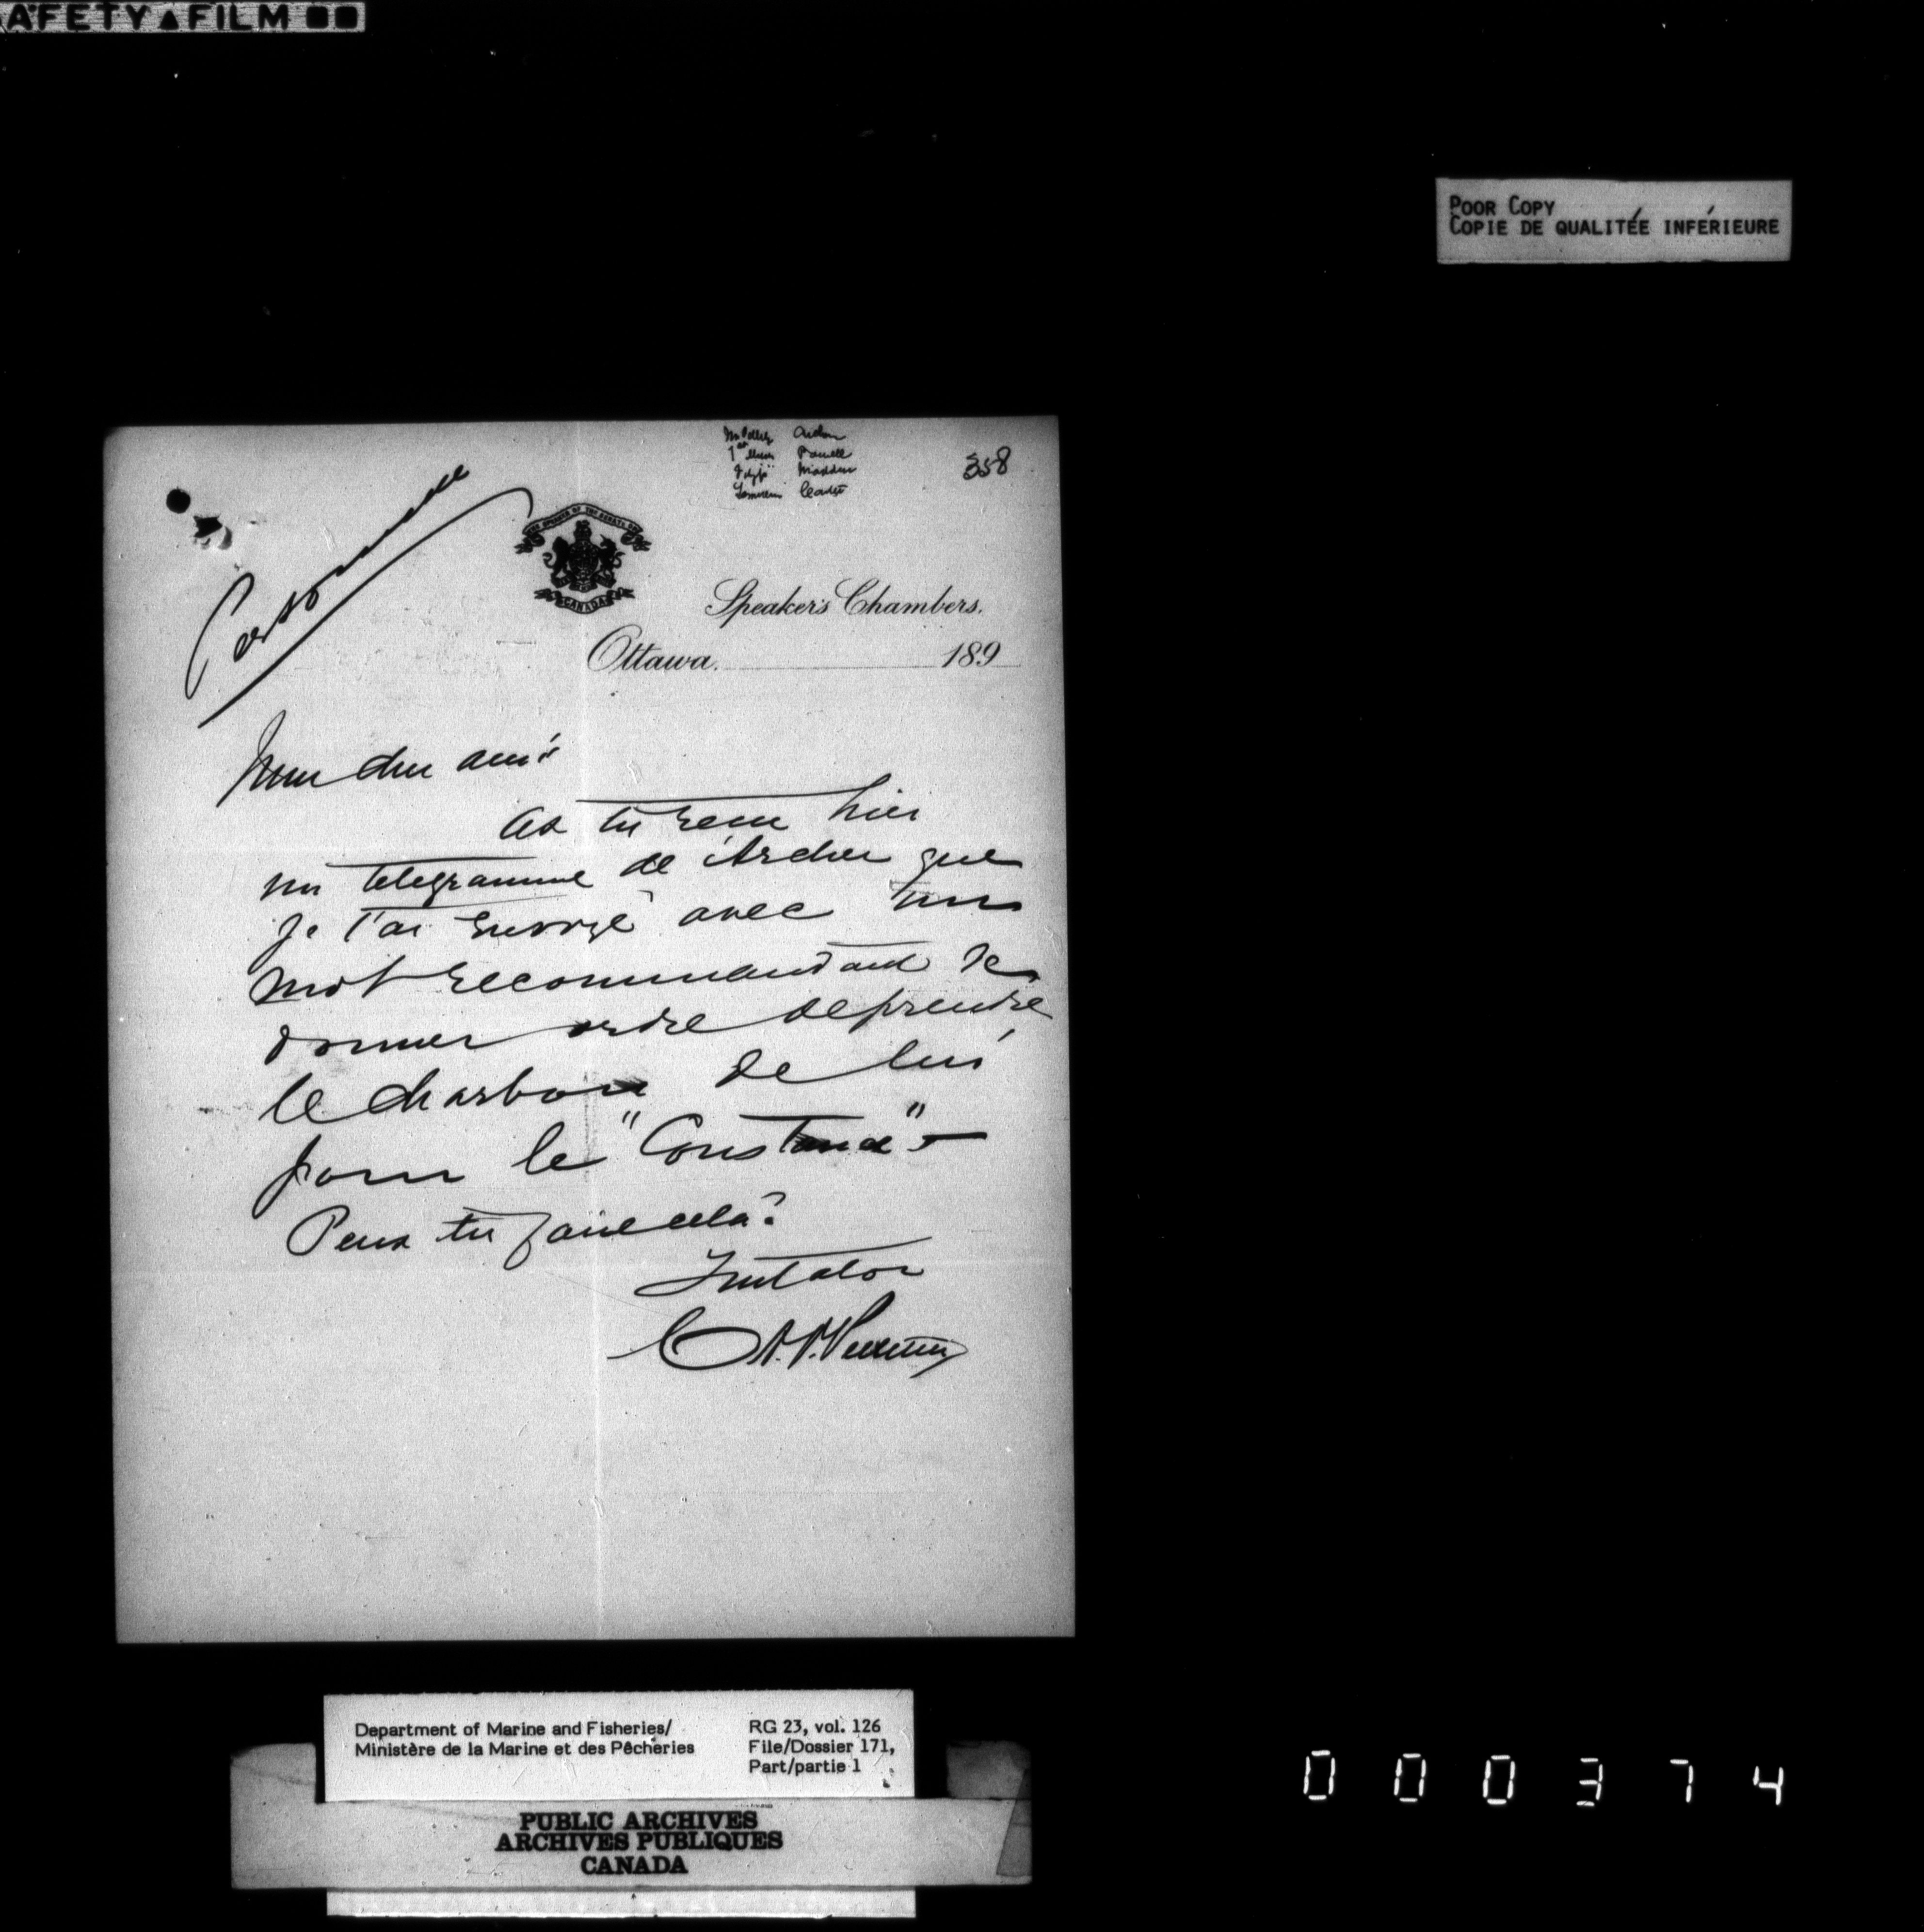 SAFETY FILM
POOR COPY
COPIE DE QUALITÉE INFÉRIEURE
358
Personnelle
CANADA
Speaker's Chambers.
Ottawa. 189
Mon cher ami
As tu recu hier
un telegramme de Archer que
je t'ai envoyé avec un
mot recommandant de
donner ordre de prendre
le charbon de lui
pour le "Constance" -
Peux tu faire cela?
Tout à toi
Department of Marine and Fisheries/
Ministère de la Marine et des Pêcheries
RG 23, vol. 126
File/Dossier 171,
Part/partie 1
PUBLIC ARCHIVES
ARCHIVES PUBLIQUES
CANADA
000374